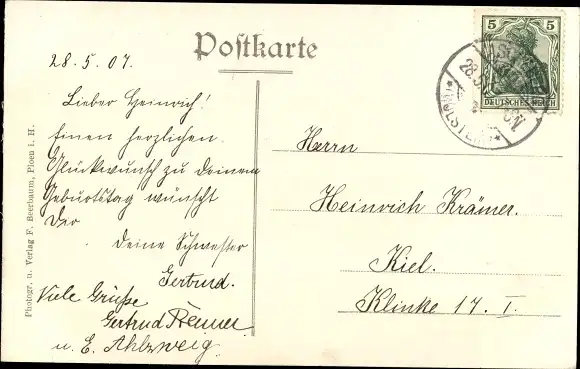 Postkarte
28.5.07.
Lieber Heinrich!
Einen herzlichen
Glückwunsch zu deinem
Geburtstag wünscht
Der
Deine Schwester
Gertrud.
Viele Grüße
Gertrud
u. E. Ahlzweig.
Photogr. u. Verlag F. Beerbaum, Ploen i. H.
5 5
DEUTSCHES REICH
28.5.
Herrn
Heinrich Krämer.
Kiel.
Klinke 17. I.